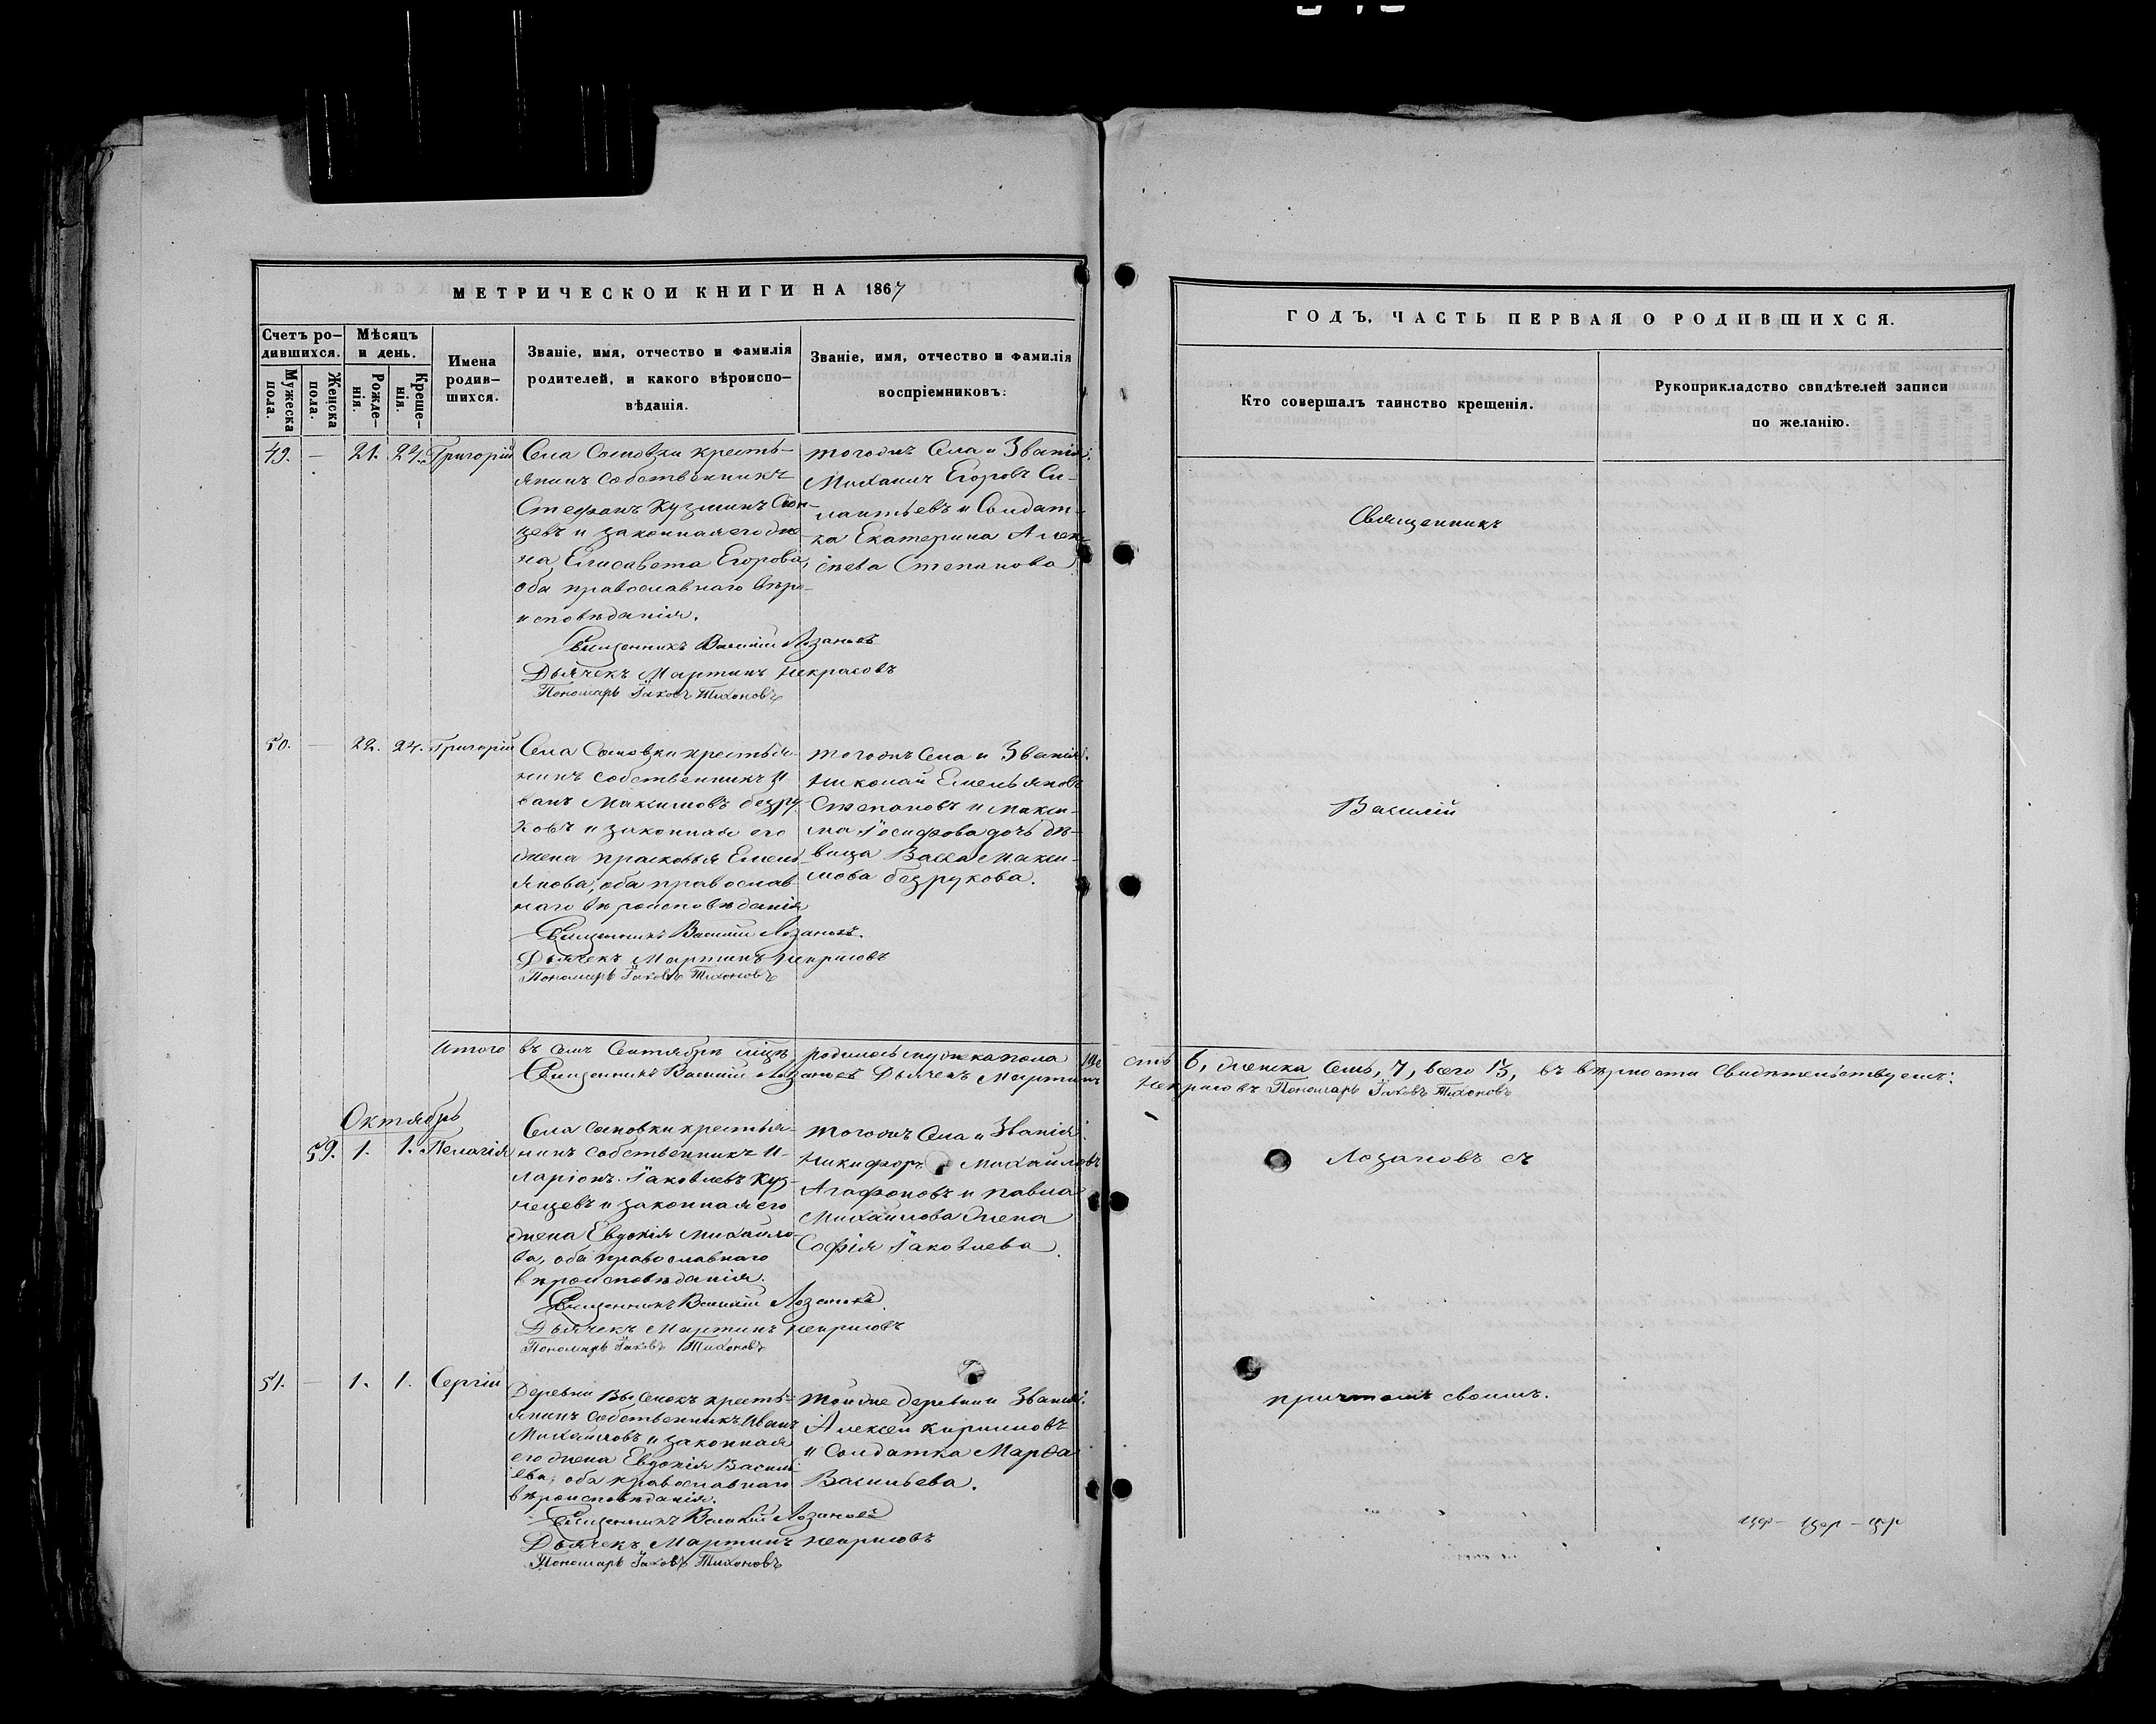 МЕТРИЧЕСКОЙ КНИГИ НА 1867
Счетъ ро-
дившихся.
Мужеска
пола.
Женска
пола.
Мѣсяцъ
и день.
Рожде-
нія.
Креще-
нія.
Имена
родив-
шихся.
Званіе, имя, отчество и фамилія
родителей, и какого вѣроиспо-
вѣданія.
Званіе, имя, отчество и фамилія
воспріемниковъ:
49. — 21. 24. Григорій
Села Сомовки кресть-
янинъ собственникъ
Стефанъ Кузминъ
цевъ и законная его же-
на Елисавета Егорова,
оба православнаго вѣро-
исповѣданія.
Священникъ Василій Лозановъ
Дьячекъ Мартинъ Некрасовъ
Пономарь Іаковъ Тихоновъ
тогожъ Села и Званія:
Михаилъ Егоровъ Си-
лантьевъ и Солдат-
ка Екатерина Алек-
сѣева Степанова
50. — 22. 24. Григорій
Села Сомовки крестья-
нинъ собственникъ И-
ванъ Максимовъ безру-
ковъ и законная его
жена Прасковья Емель-
янова, оба православ-
наго вѣроисповѣданія
Священникъ Василій Лозановъ.
Дьячекъ Мартинъ Некрасовъ
Пономарь Іаковъ Тихоновъ
тогожъ Села и Званія:
Николай Емельяновъ
Степановъ и Макси-
ма Іосифова дочь дѣ-
вица Васса Макси-
мова безрукова.
Итого въ семъ Сентябрѣ мѣцѣ родилось мужеска пола ше
Священникъ Василій Лозановъ Дьячекъ Мартинъ
Октябрь
59. 1. 1. Пелагія
Села Сомовки крестья-
нинъ собственникъ И-
ларіонъ Іаковлевъ Куз-
нецевъ и законная его
жена Евдокія Михайло-
ва, оба православнаго
вѣроисповѣданія.
Священникъ Василій Лозановъ
Дьячекъ Мартинъ Некрасовъ
Пономарь Іаковъ Тихоновъ
тогожъ Села и Званія:
Никифоръ Михайловъ
Агафоновъ и Павла
Михайлова жена
Софія Іаковлева.
51. — 1. 1. Сергій
Деревни Выселокъ кресть-
янинъ собственникъ Иванъ
Михайловъ и законная
его жена Евдокія Василь-
ева, оба православнаго
вѣроисповѣданія.
Священникъ Василій Лозановъ
Дьячекъ Мартинъ Некрасовъ
Пономарь Іаковъ Тихоновъ
Тойже деревни и Званія:
Алексѣй Кириловъ
и Солдатка Марѳа
Васильева.
ГОДЪ, ЧАСТЬ ПЕРВАЯ О РОДИВШИХСЯ.
Кто совершалъ таинство крещенія.
Рукоприкладство свидѣтелей записи
по желанію.
Священникъ
Василій
сть 6, женска семь, 7, всего 13, въ вѣрности Свидѣтельствуемъ:
Некрасовъ Пономарь Іаковъ Тихоновъ
Лозановъ съ
причтомъ своимъ.